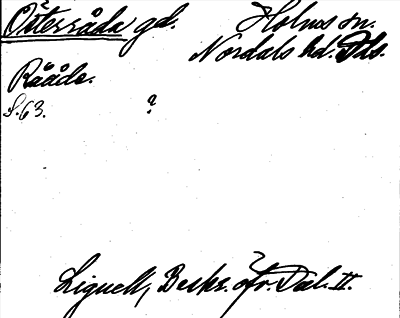 Österråda gd. Holms sn.
Nordals hd. Dls.
Rååde.
S. 63. ?
Lignell, Beskr. öfr. Dal. II.